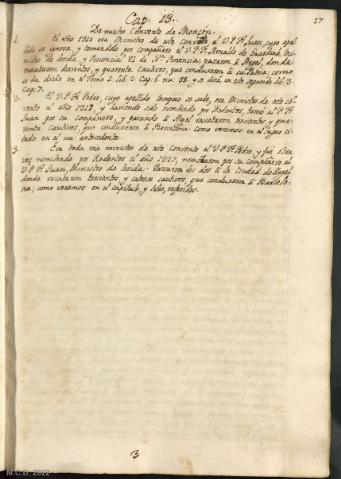 Cap. 13.
57
De nuestro Convento de Monzon.
1. El año 1310 era Ministro de este Convento el V. P. Fr. Juan, cuyo ape-
llido se ignora, y tomandole por compañero el V. P. Fr. Arnaldo de
nistro de Lerida, y Provincial VI de Sta. Provincia, pasaron à Argel, don de
rescataron docientos, y quarenta Cautivos, que conduxeron à su Patria; como
se ha dicho en el Tomo 1. lib. 2. Cap. 6. num. 33. y se dirà en este segundo lib. 3.
Cap. 7.
2. El V. P. Fr. Pedro, cuyo apellido tampoco se sabe, era Ministro de este con-
vento el año 1319, y haviendo sido nombrado por Redentor, tomò al P. Fr.
Juan por su compañero, y pasando à Argel rescataron trecientos y qua-
renta Cautivos, que conduxeron à Barcelona: como veremos en el lugar ci-
tado en el num. antecedente.
3. Era toda via ministro de este Convento el V. P. Fr. Pedro, y fue otra
vez nombrado por Redentor el año 1327, nombraron por su compañero al
V. P. Fr. Juan, Ministro de Lerida. Pasaron los dos à la Ciudad de Argel
donde rescataron trecientos, y catorce cautivos, que conduxeron à Barcelo-
na; como veremos en el capitulo, y libro, referidos.
13
M.C.D. 2022